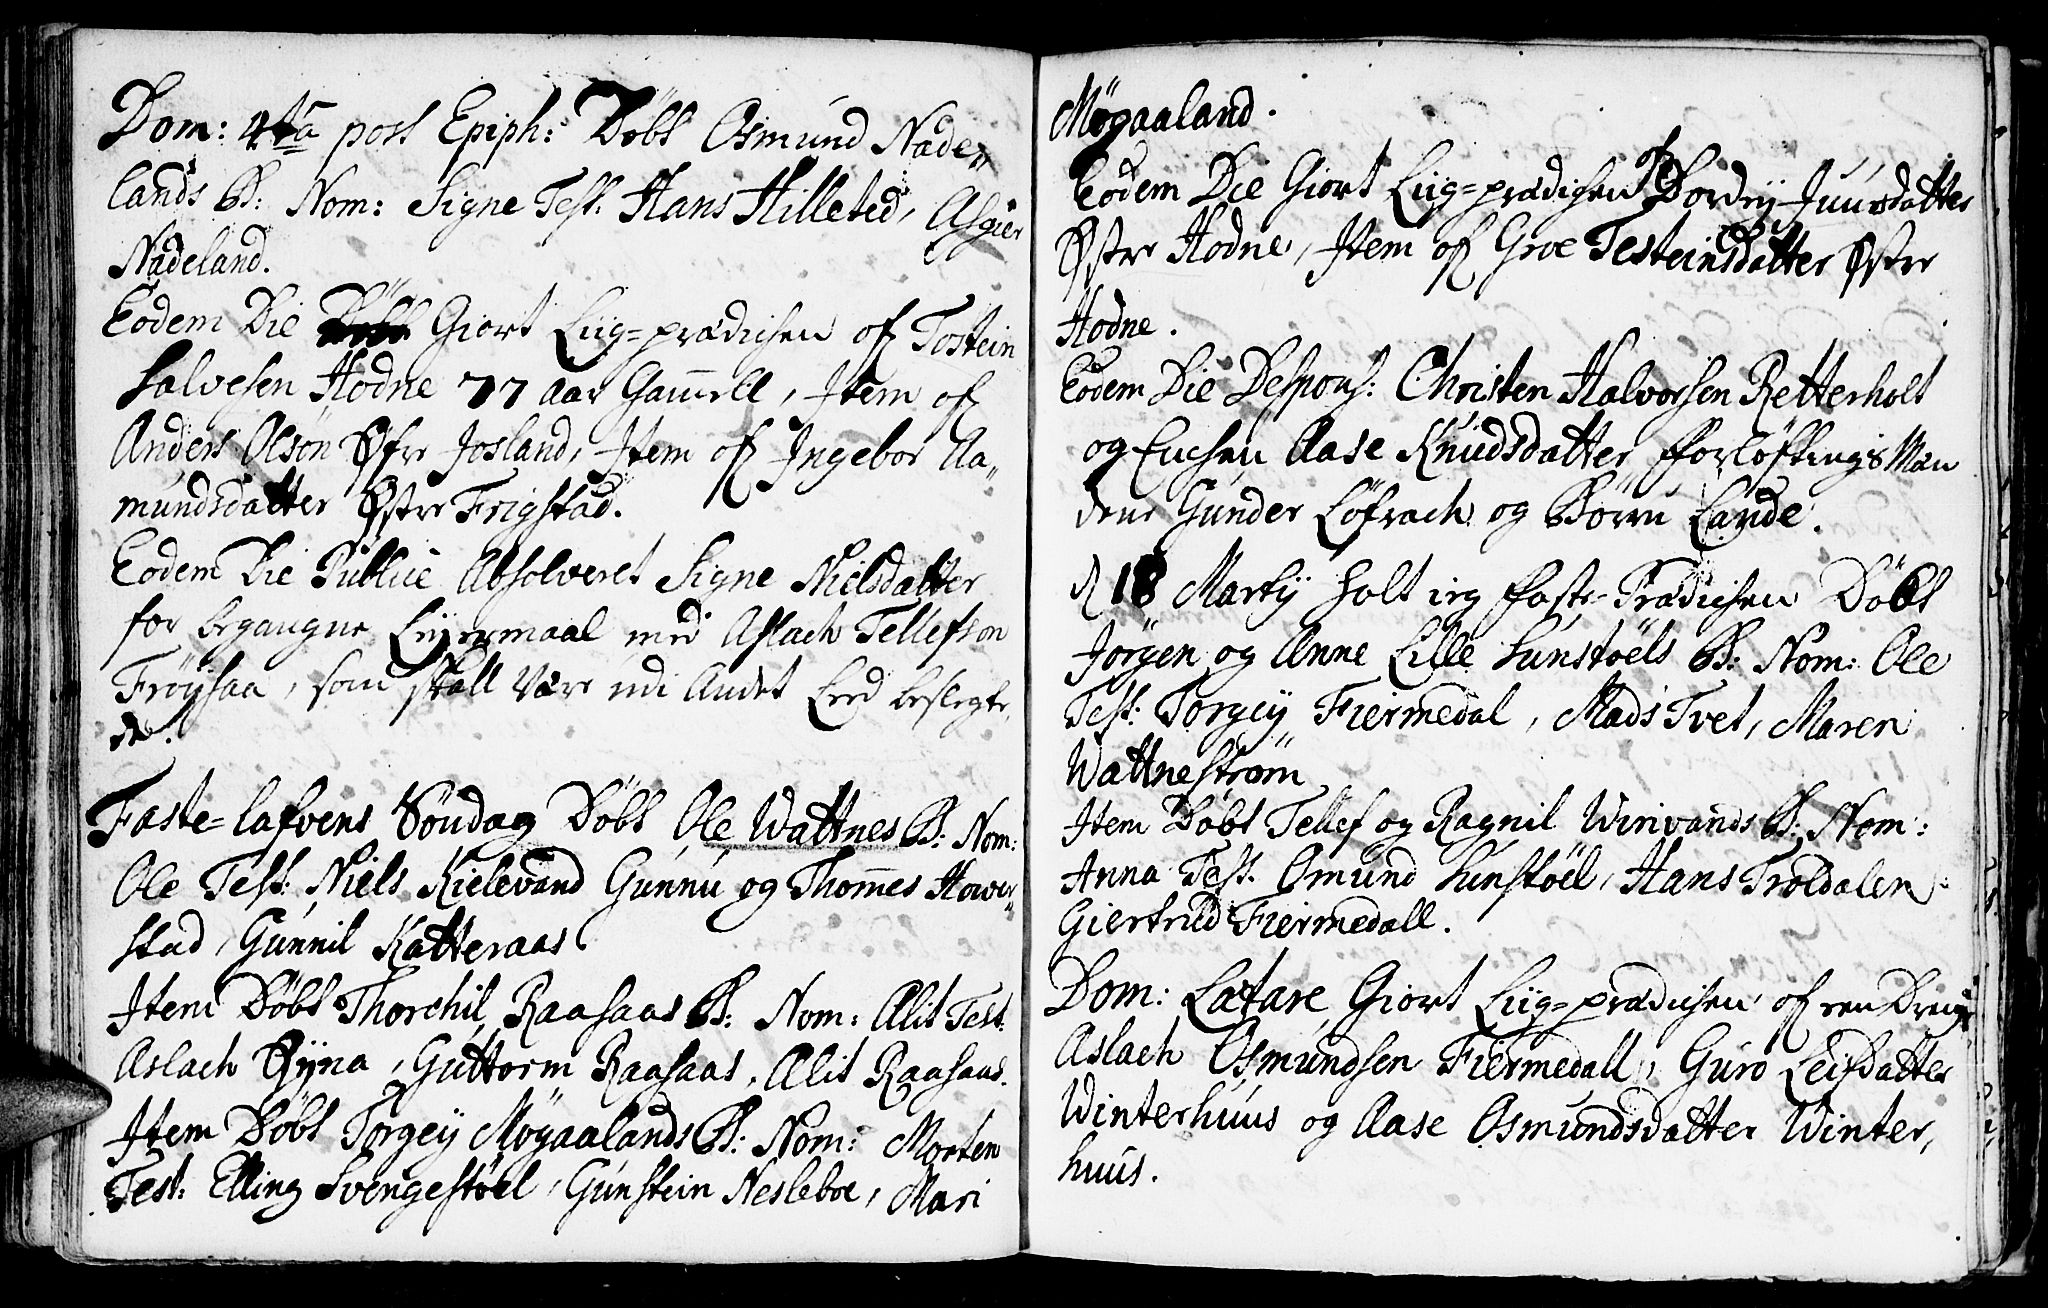 Dom: 4ta post Epiph: Døbt Osmund Nade„
lands B: Nom: Signe Test: Hans Hilleted, Asgier
Nadeland.
Eodem Die Giort Liig=prædichen of Tostein
Salvesen Hodne 77 aar Gam̄ell, Item of
Anders Olsøn Øfre Josland, Item of Ingebor Aa„
mundsdatter Østre Frigstad.
Eodem Die Publicè Absolveret Signe Nielsdatter
for begangne Leyermaal med Aslach Tellefson
Frøysaa, som skall være udi Andet Leed beslegte,
de.
Faste=lafvens Søndag Døbt Ole Wattnes B: Nom:
Ole Test: Niels Kielevand Gunnu og Thom̄es Hower„
stad, Gunnil Katteraas
Item Døbt Thorchil Raasaas B: Nom: Ælit Test:
Aslach Øyna, Guttorm Raasaas, Ælit Raasaas.
Item Døbt Torgey Møgaalands B: Nom: Morten
Test: Elling Svengestøel, Gunstein Nesleboe, Mari
Møgaaland.
Eodem Die Giort Liig=prædichen of Dordey Juursdatter
Østre Hodne, Item of Groe Testeinsdatter Østre
Hodne.
Eodem Die Despons: Christen Halvorsen Retterholt
og Enchen Aase Knudsdatter, fforløftnings Mæn
dene Gunder Løfrach og Børru Lande.
d 18 Martij holt ieg ffaste-Prædichen Døbt
Jørgen og Anne Lille Sunstøels B: Nom: Ole
Test: Torgey Fiermedal, Mads Tvet, Maren
Wattnestrøm
Item Døbt Tellef og Ragnil Wirivands B: Nom:
Anna Test. Osmund Sunstøel, Hans Troldalen
Giertrud Fiermedall.
Dom: Lætare Giort Liig=prædichen of een Dreng
Aslach Osmundsen Fiermedall, Guro Leifdatter
Winterhuus og Aase Osmundsdatter Winter,
huus.